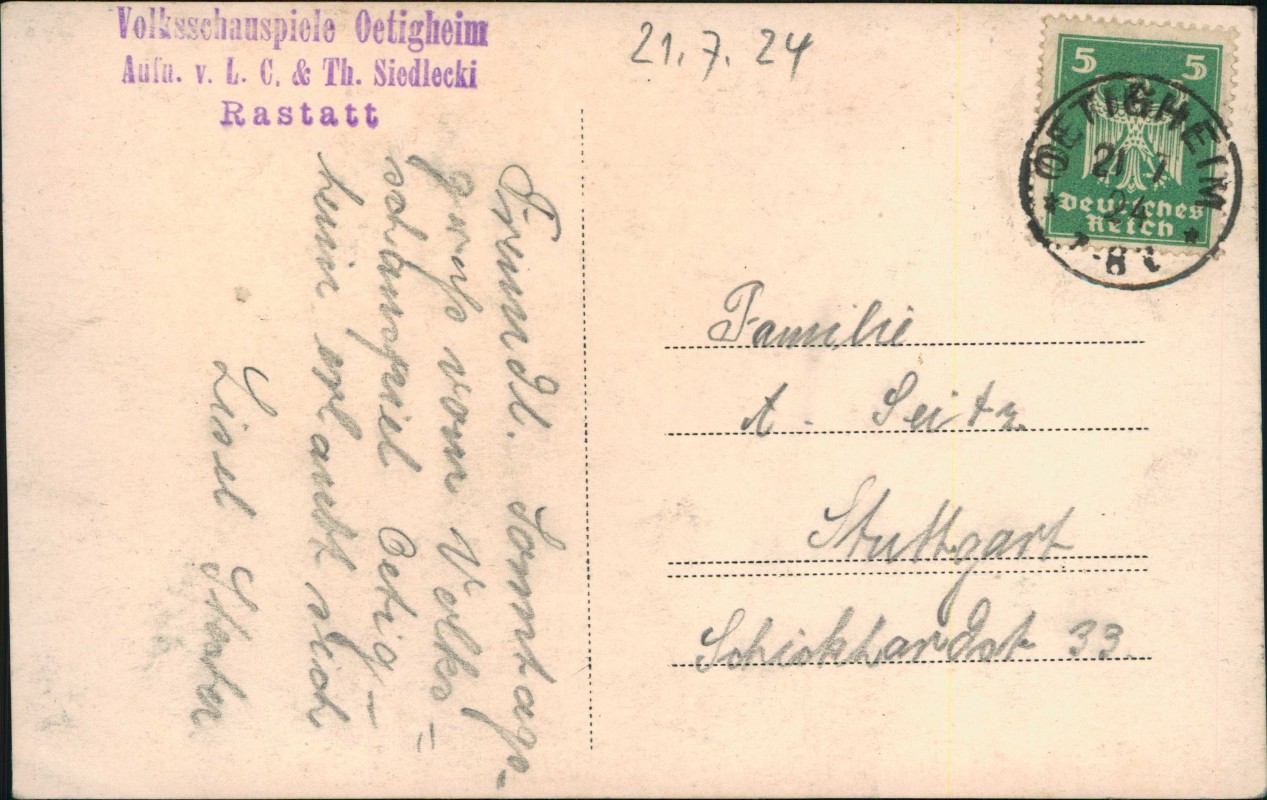 Volksschauspiele Oetigheim
Aufn. v. L. C. & Th. Siedlecki
Rastatt
21.7.24
5 5
Deutsches
Reich
OETIGHEIM
21 7
24
7-8
Freundl. Sonntags-
gruß vom Volks=
schauspiel Oetig-
heim erlaubt sich
Lisel
Familie
A. Seitz
Stuttgart
Schickhardst 33.